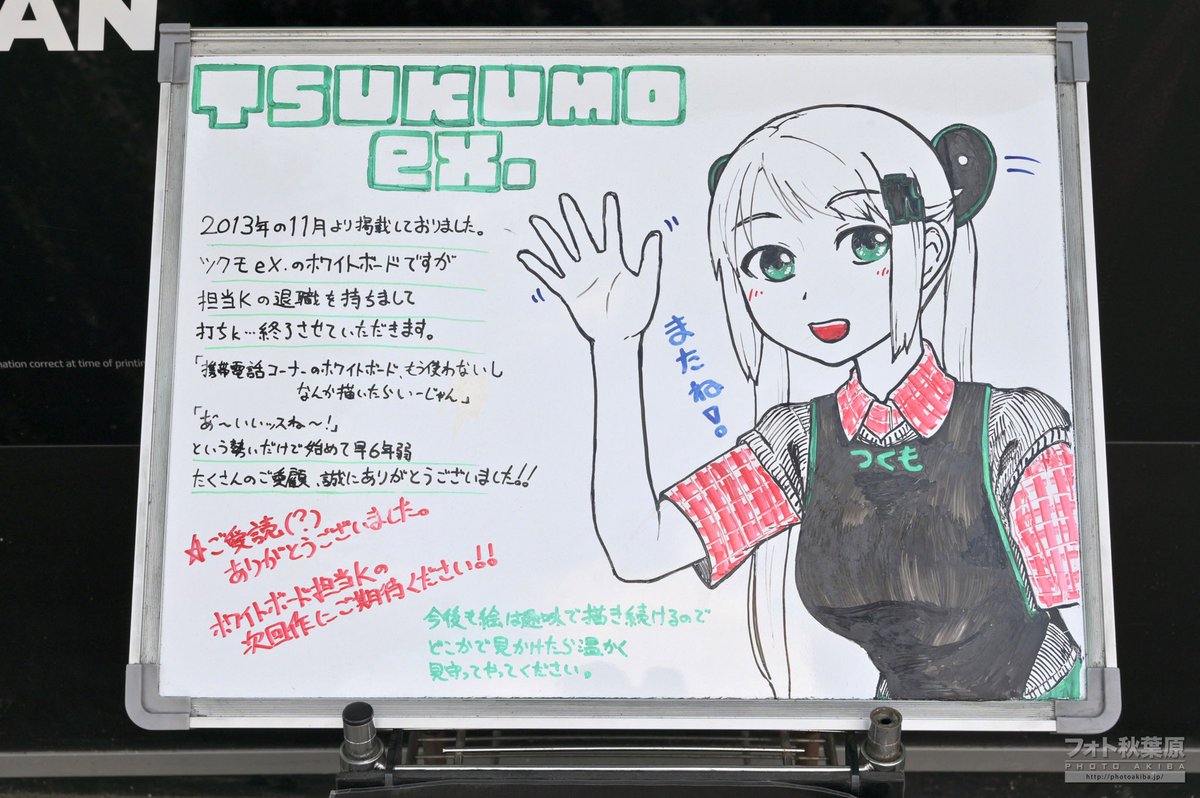 AN
TSUKUMO
ex.
2013年の11月より掲載しておりました。
ツクモeX.のホワイトボードですが
担当Kの退職を持ちまして
打ちk…終了させていただきます。
「携帯電話コーナーのホワイトボード、もう使わないし
なんか描いたらいーじゃん」
「あ゛〜いいッスね〜!」
という勢いだけで始めて早6年弱
たくさんのご愛顧、誠にありがとうございました!!
☆ご愛読(?)
ありがとうございました。
ホワイトボード担当Kの
次回作にご期待ください!!
今後も絵は趣味で描き続けるので
どこかで見かけたら温かく
見守ってやってください。
またね!。
つくも
mation correct at time of printin
フォト秋葉原
PHOTO AKIBA
http://photoakiba.jp/